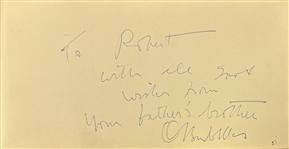 To Robert
with all good
wishes from
your father's brother